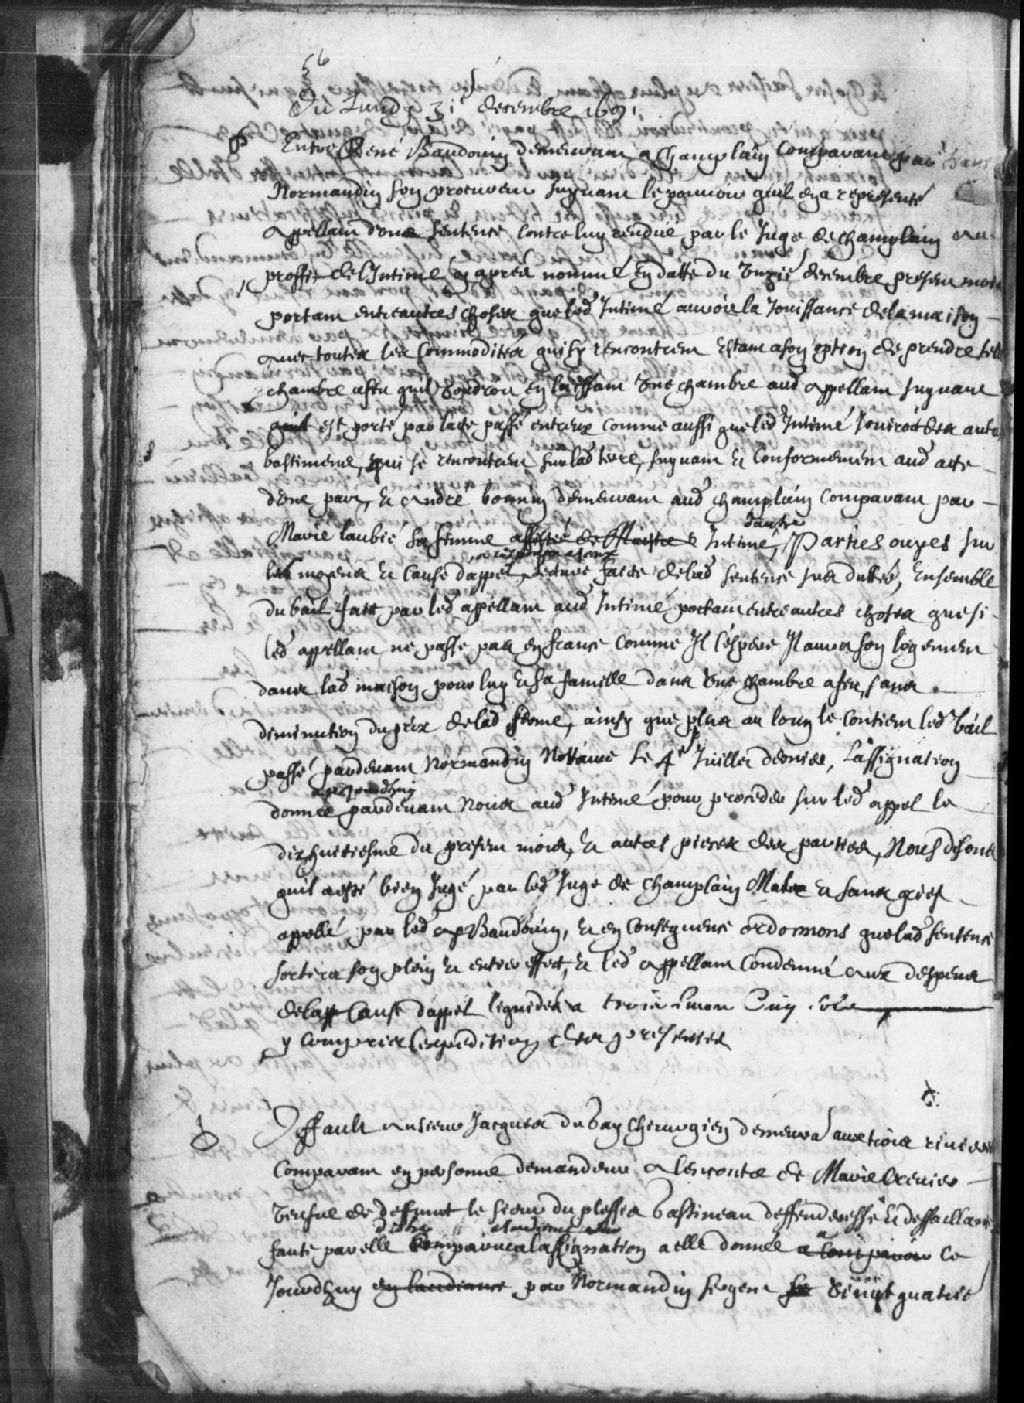 56
Du Lundy 31e decembre 1691
Entre René Baudouin demeurant a Champlain comparant par
Normandin son procureur suyvant le pouvoir quil en a representé
appellant d'une sentence contre luy rendue par le Juge de champlain au
proffit de l'Intimé cy apres nommé en datte du decembre present mois
portant entre autres choses que led Intimé auroit la Jouissance de la maison
avec toutes les commoditez qui sy rencontrent estant a son option de prendre telle
chambre a feu quil voudroit en laissant une chambre aud appellant suyvant
quil est porté par lacte passé entreux comme aussi que led Intimé Jouiroit des autres
bastimens qui se rencontrent sur lad terre, suyvant et conformement aud acte
d'une part, et Andre bonnin demeurant aud champlain comparant par
Marie laubié sa femme Intimé, d'autre
Parties ouyes sur
les moyens et cause dappel, lecture faite de lad sentence sus dattée, Ensemble
du bail fait par led appellant aud Intimé portant entre autres choses que si
led appellant ne passe pas en france comme Il l'espere Il aura son logement
dans lad maison pour luy et sa famille dans une chambre a feu, sans
diminution du prix de lad ferme, ainsy que plus au long le contient led bail
passé pardevant Normandin Nottaire Le 4e Juillet dernier, L'assignation
a ce jourdhuy
donnée pardevant Nous aud Intimé pour proceder sur led appel le
dixhuitiesme du present mois, et autres pieces des parties, Nous disons
quil a esté bien Jugé par led Juge de champlain Mal et sans grief
appellé par led Baudouin, et en consequence ordonnons que lad sentence
sortira son plein et entier effect, et led appellant condemné aux despens
de la cause dappel liquidés a trois
y compris l'expedition des presentes
Deffault au sieur Jacques dubay chirurgien demeurant aux trois rivieres
comparant en personne demandeur a l'encontre de Marie
veufve de deffunt le sieur du plessis Gastineau deffenderesse et deffaillante
faute par elle a lassignation a elle donnée a ce
Jourdhuy par Normandin sergent vingt quatre